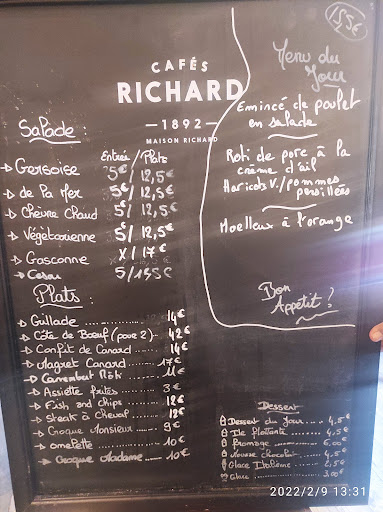 CAFÉS
RICHARD
— 1892 —
MAISON RICHARD
Salade :
Entrée / Plats
→ Gersoise 5€/ 12,5€
→ de la Mer 5€/ 12,5€
→ Chèvre Chaud 5/ 12,5€
→ Végétarienne 5/ 12,5€
→ Gasconne X/ 17€
→ Cesar 5/
Plats :
→ Grillade ......... 14€
→ Côte de Bœuf (pour 2) .. 42€
→ Confit de Canard ...... 14€
→ Magret Canard ......
→ Camembert Rôti ... 11€
→ Assiette frites ....... 3€
→ Fish and chips ....... 12€
→ steak à cheval ....... 12€
→ Croque Monsieur ..... 9€
→ omelette ......... 10€
→ Croque Madame ..... 10€
15,5€
Menu du
Jour
Emincé de poulet
en salade
Roti de porc à la
crème d'ail
Haricots V./pommes
persillées
Moelleux à l'orange
Bon
Appétit !
Dessert
Dessert du Jour .... 4,5€
Ile Flottante .... 4,5€
Fromage ..... 6,00€
Mousse Chocolat .... 4,5€
Glace Italienne ... 2,5€
Glace ....... 3,00€
2022/2/9 13:31